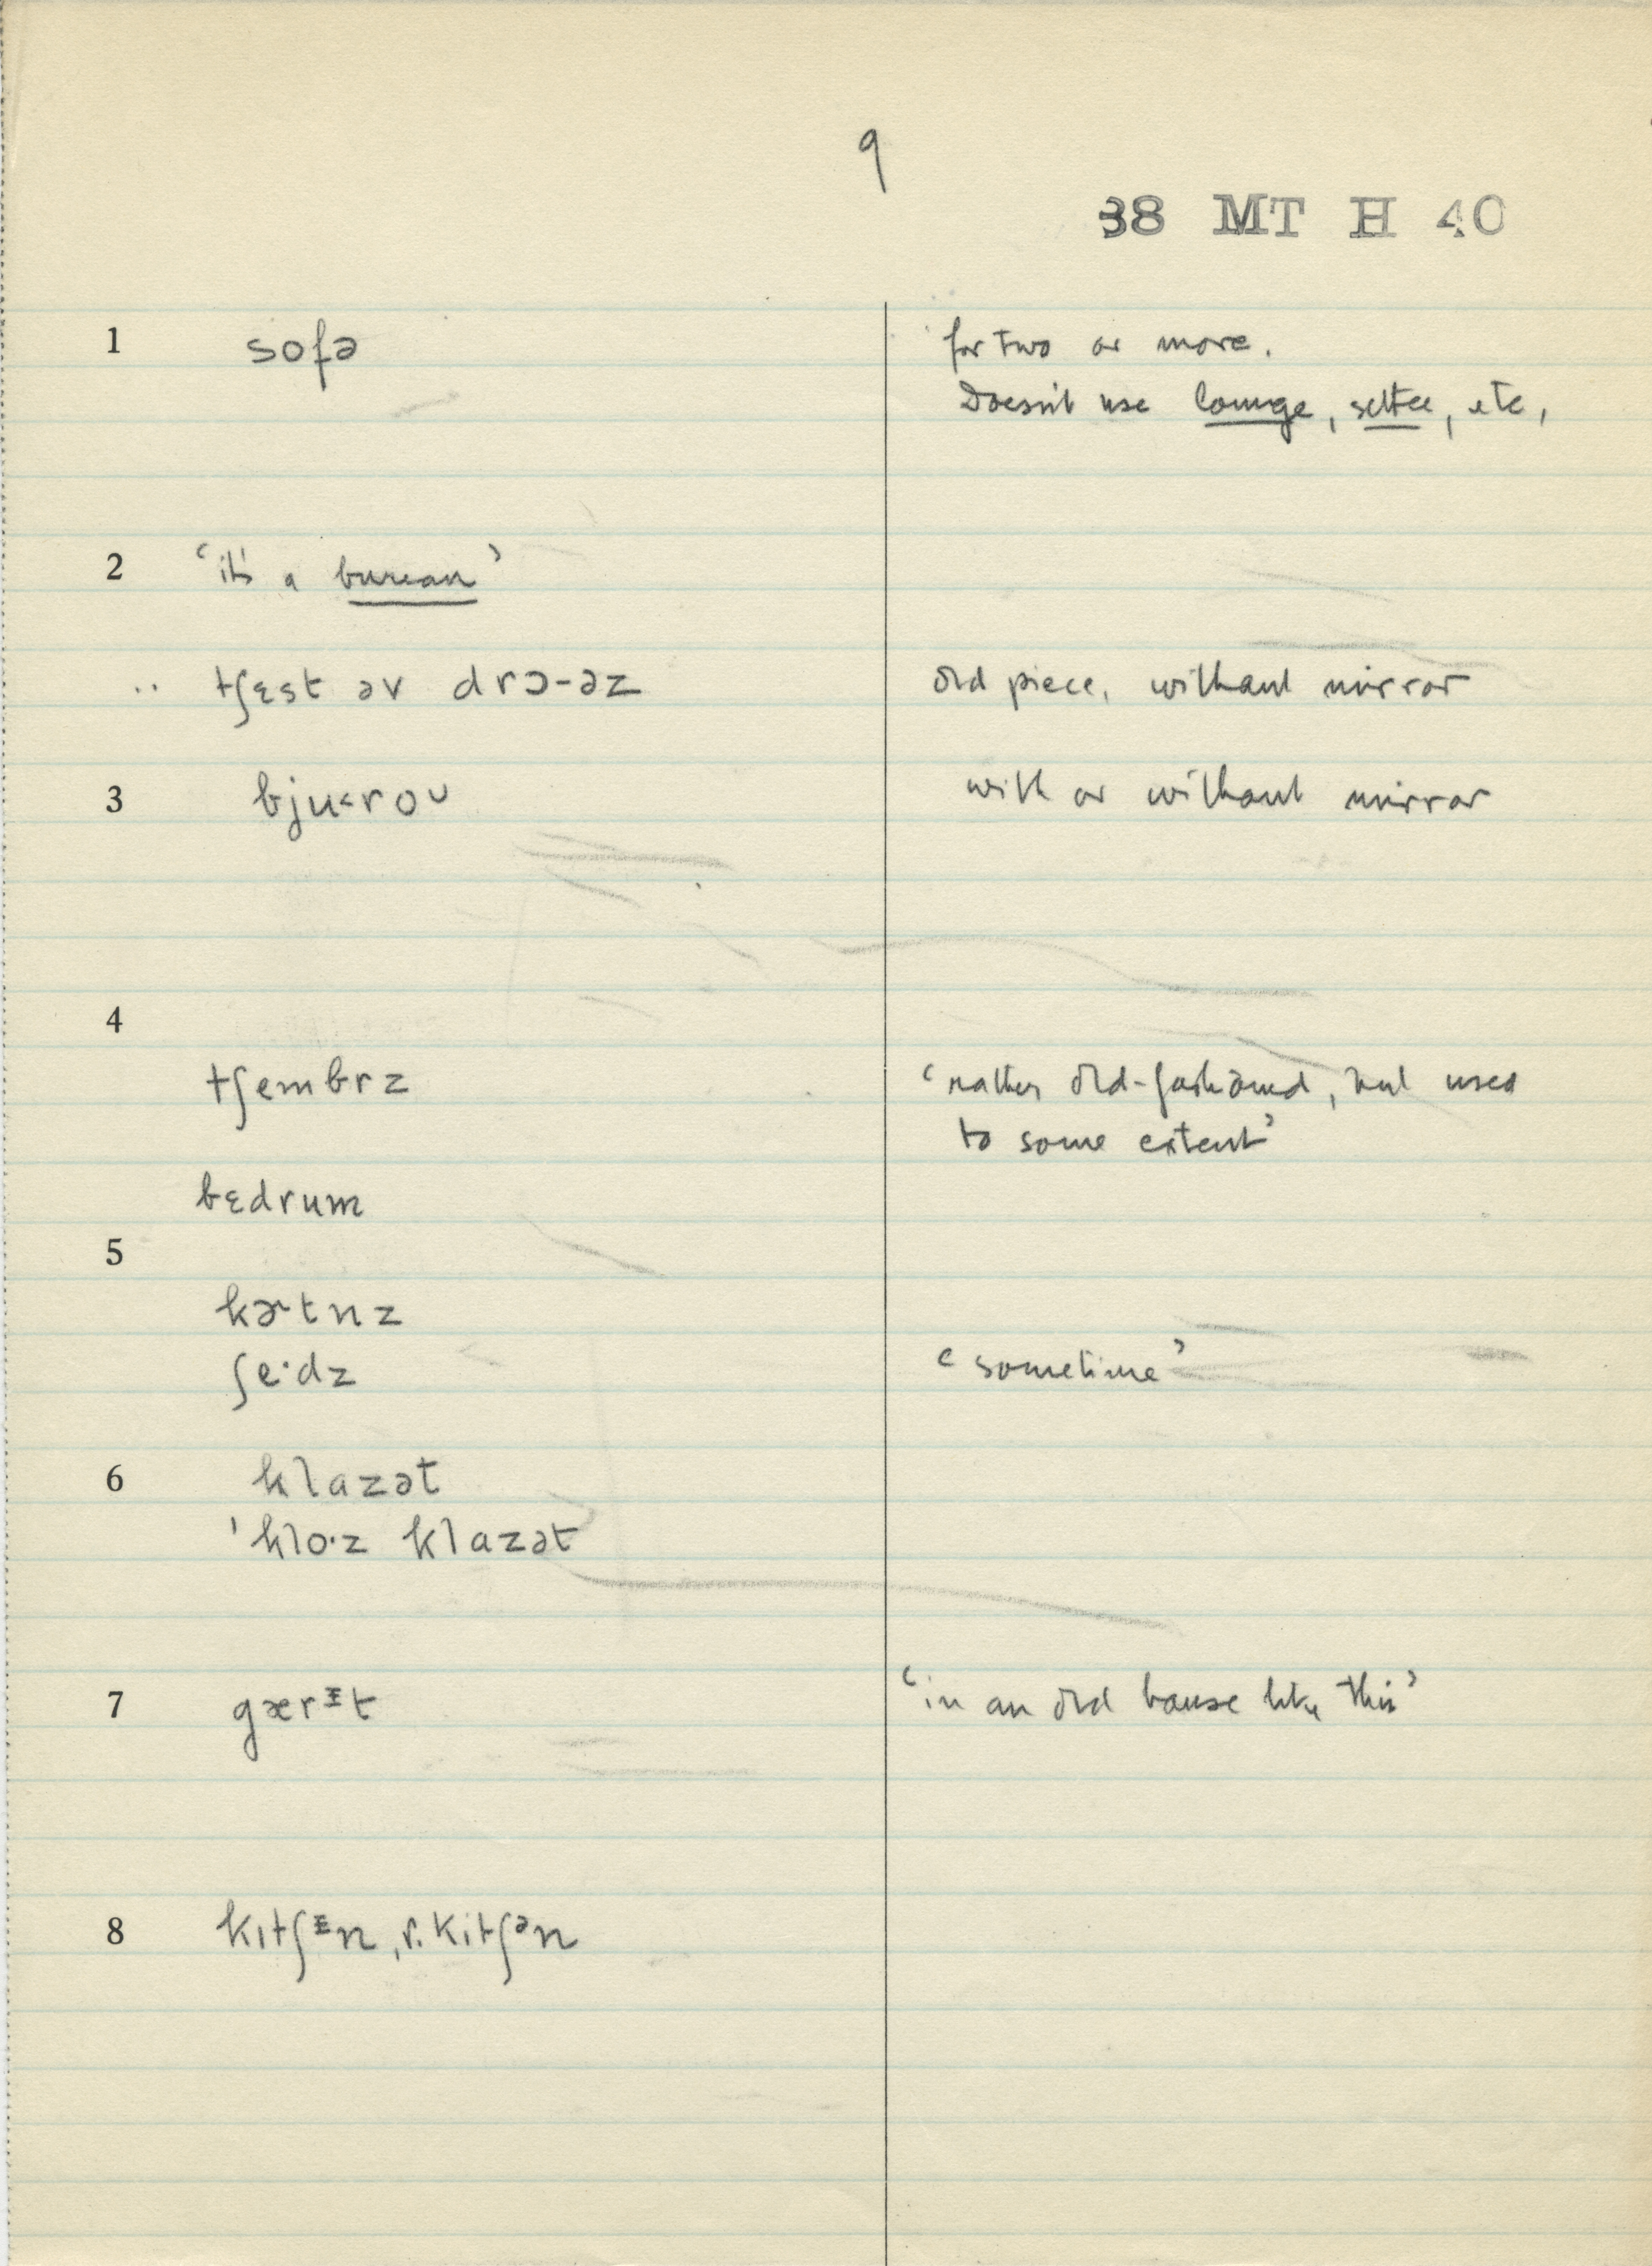 9
38 MT H 40
1 sofə for two or more.
Doesn't use lounge, settee, etc,
2 'it's a bureau'
.. tʃɛst əv drɔ-əz old piece, without mirror
3 bju<roᴜ with or without mirror
4
tʃembrz 'rather old-fashioned, but used
to some extent'
bɛdrum
5
kɚtnz
ʃe·dz 'sometime'
6 klazət
'klo·z klazət
7 gærᵻt 'in an old house like this'
8 kɪtʃᵻn, r. kitʃᵊn